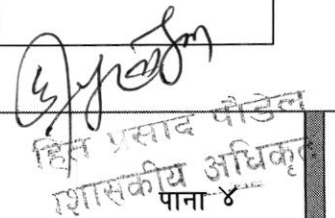 हित प्रसाद पौडेल
शासकीय अधिकृत
पाना ४